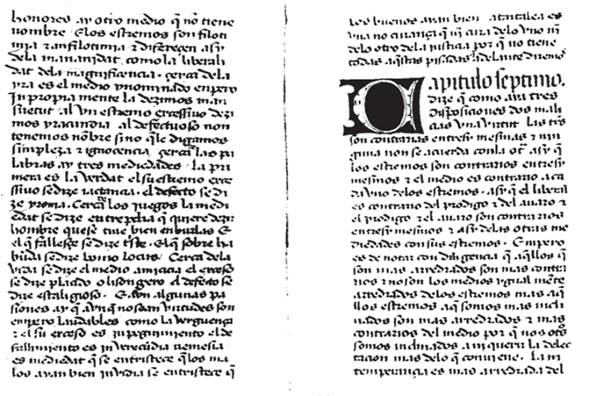 honores ay otro medio q̃ no tiene
nombre. E los estremos son filoti
mia & anfilotimia & difereçen asy
de la mananidat, como la liberali
dat de la magnificencia. çerca de la
yra es el medio ynominado enpero
inpropia mente la dezimos man
suetut al un estremo excessiuo dezi
mos yracundia al defectuoso non
tenemos nõbre sino q̃ le digamos
simpleza & ignocencia. çerca las pa
labras ay tres mediedades. La pri
mera es la verdat el su estremo exce
ssiuo se dize ractancia. el defecto se di
ze yronia. Cerca los juegos la medi
edat se dize entrepelia q̃ quiere dezir
hombre que se tiue bien en burlas E
el q̃ fallesçe se dize t̃ste. El q̃ sobre ha
bũda se dize como locats. Cerca de la
vida se dize el medio amicicia el exceso
se dize placido o lisongero el defecto se
dize estaligioso. E son algunas pa
siones ay q̃ aun q̃ no sean virtudes son
enpero laudables como la verguença
& el su exceso es inpegnimiento el de
fallimiento es inverecũdia nemesia
es mediedat q̃ se entristece q̃ los ma
los ayan bien invidia se entristece q̃
los buenos ayan bien. acatalea es
vna no curança q̃ nĩ cura delo vno nĩ
delo otro dela justicia por q̃ no tiene
todas aq̃stas pisadas adelante diremos
Capitulo septimo.
dize q̃ como aya tres
disposiciones dos mali
cias vna virtut. las tres
son contrarias entresy mesmas & nin
guna non se acuerda con la ot̃ asy q̃
los estremos son contrarios entresy
mesmos & el medio es contrario a ca
da vno delos estremos. asy q̃ el liberal
es contrario del prodigo & del auaro &
el prodigo & el auaro son contrarios
entresy mesmos & asy delas otras me
diedades con sus estremos. E mpero
es de notar con diligencia q̃ aq̃llos q̃
son mas arredrados son mas contra
rios & no son los medios ygual mente
arredrados delos estremos mas aq̃
llos estremos aq̃ somos mas incli
nados son mas arredrados & mas
contrarios del medio por q̃ nos ot̃s
somos inclinados a inquerir la delec
tacion mas delo q̃ conuiene. La in
temperança es mas arredrada del